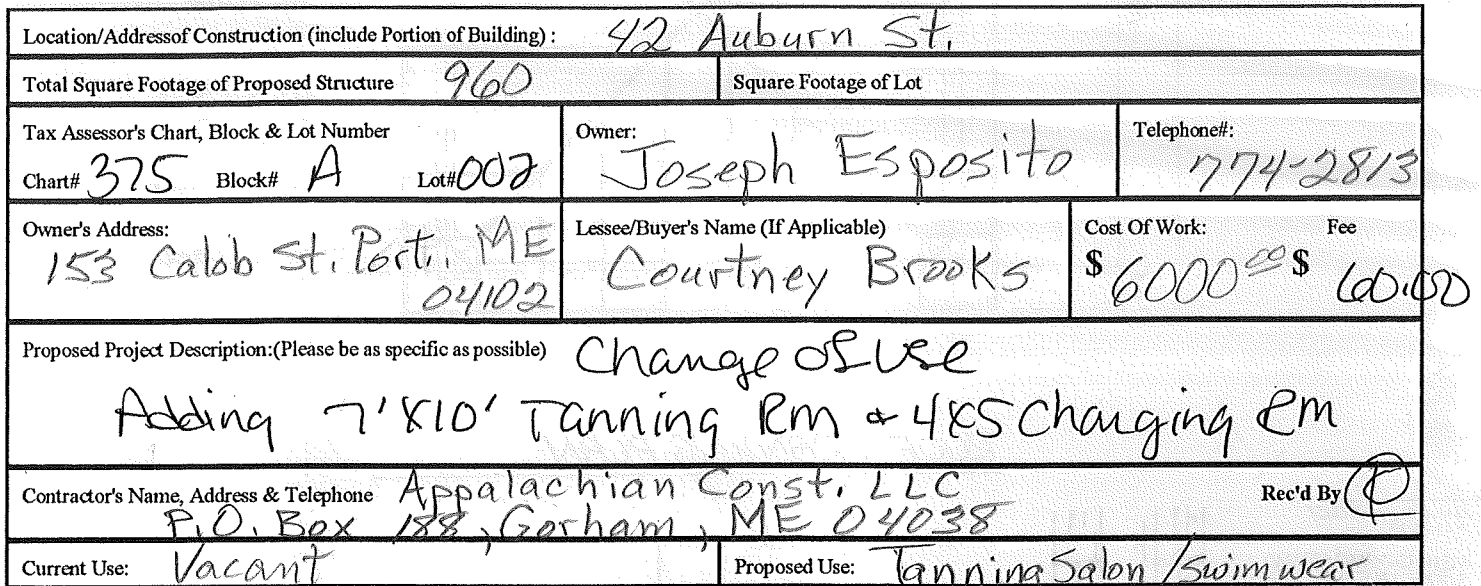 Location/Addressof Construction (include Portion of Building) : 42 Auburn St.
Total Square Footage of Proposed Structure 960 Square Footage of Lot
Tax Assessor's Chart, Block & Lot Number Owner: Telephone#:
Chart# 375 Block# A Lot# 002 Joseph Esposito 774-2813
Owner's Address: Lessee/Buyer's Name (If Applicable) Cost Of Work: Fee
153 Calob St. Port., ME Courtney Brooks $ 6000 00 $ 60.00
04102
Proposed Project Description:(Please be as specific as possible) Change of Use
Adding 7'X10' Tanning Rm & 4X5 Changing Rm
Contractor's Name, Address & Telephone Appalachian Const. LLC Rec'd By
P.O. Box 188, Gorham, ME 04038
Current Use: Vacant Proposed Use: Tanning Salon / swimwear